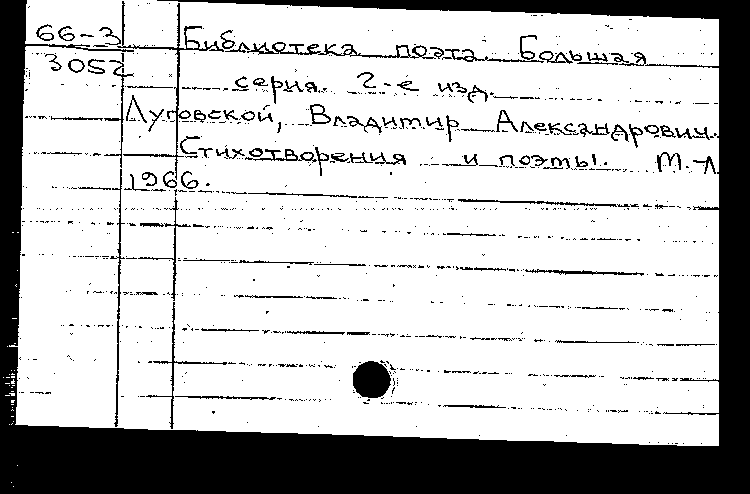 66-3 Библиотека поэта. Большая
3052 серия. 2-е изд.
Луговской, Владимир Александрович.
Стихотворения и поэмы. М.-Л
1966.